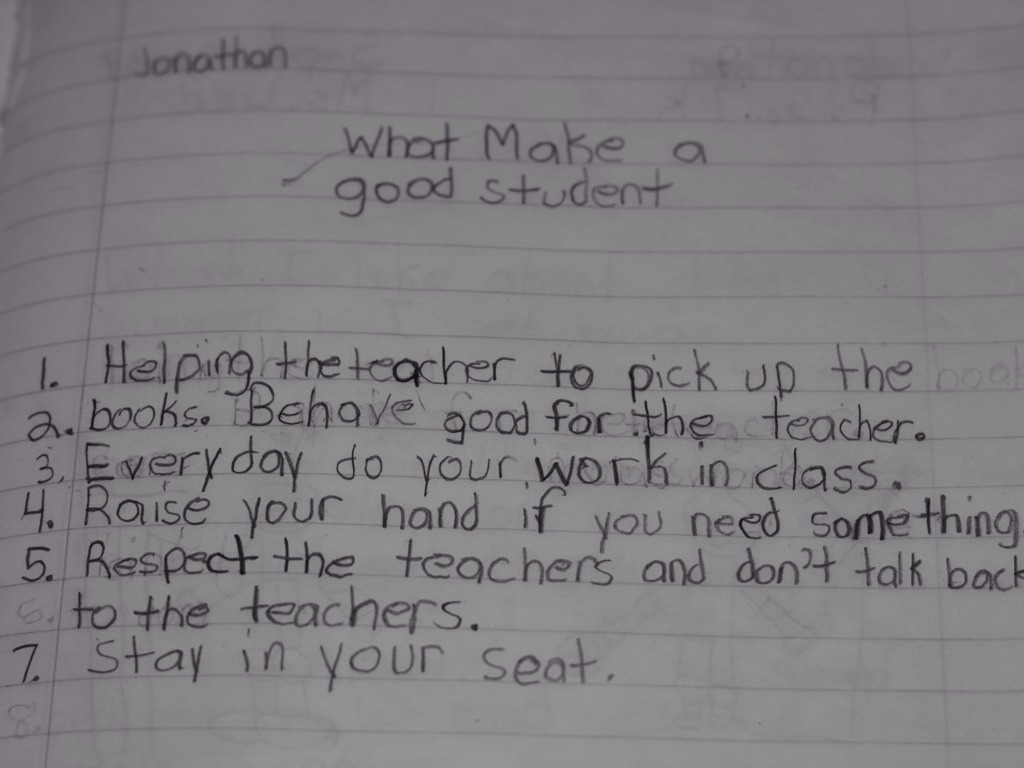 Jonathon
What Make a
good student
1. Helping the teacher to pick up the
2. books. Behave good for the teacher.
3. Everyday do your work in class.
4. Raise your hand if you need something
5. Respect the teachers and don't talk back
6. to the teachers.
7. Stay in your seat.
8.